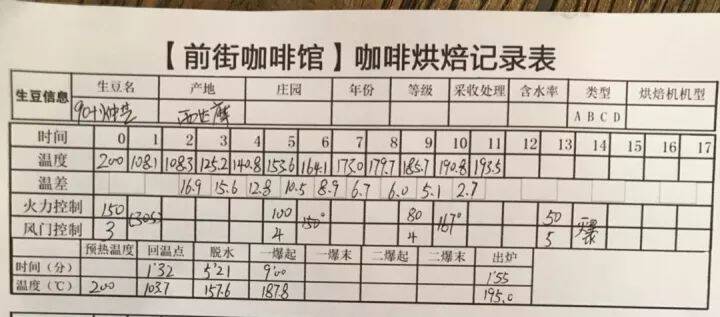 【前街咖啡馆】咖啡烘焙记录表
生豆信息 生豆名 产地 庄园 年份 等级 采收处理 含水率 类型 烘焙机机型
90+ 西达摩 A B C D
时间 0 1 2 3 4 5 6 7 8 9 10 11 12 13 14 15 16 17
温度 200 108.1 108.3 125.2 140.8 153.6 164.1 173.0 179.7 185.7 190.8 193.5
温差 16.9 15.6 12.8 10.5 8.9 6.7 6.0 5.1 2.7
火力控制 150 (30s) 100 150° 80 167° 50 爆
风门控制 3 4 4 5
预热温度 回温点 脱水 一爆起 一爆末 二爆起 二爆末 出炉
时间(分) 1'32 5'21 9'00 1'55
温度(℃) 200 103.7 157.6 187.8 195.0